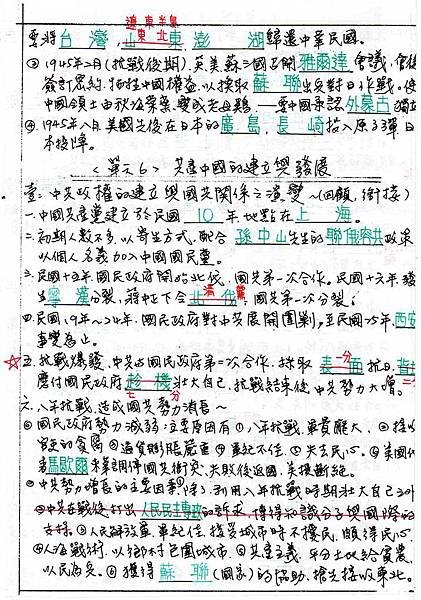 遼東半島
要將台灣,山東,澎湖歸還中華民國。
東北
③1945年2月(抗戰後期),英、美、蘇三國召開雅爾達會議,會後
簽訂密約,犧牲中國權益,以換取蘇聯出兵對日作戰。使
中國領土由秋海棠葉變成老母雞——要中國承認外蒙古獨立
④1945年八月美國先後在日本的廣島,長崎投入原子彈,日
本投降。
<單元6> 共產中國的建立與發展
壹:中共政權的建立與國共關係之演變~(回顧,銜接)
一.中國共產黨建立於民國10年地點在上海。
二.初期人數不多,以寄生方式,配合孫中山先生的聯俄容共政策
以個人名義加入中國國民黨。
三.民國十五年國民政府開始北伐,國共第一次合作。民國十六年發
生寧漢分裂,蔣中正下令清黨,國共第一次分裂;
四.民國19年~24年,國民政府對中共展開圍剿,至民國25年西安
事變為止。
☆五.抗戰爆發,中共與國民政府第二次合作,採取表面抗日,
一分
應付國民政府趁機壯大自己,抗戰結束後中共勢力大增。
七分
二分
六.八年抗戰,造成國共勢力消長~
◎國民政府勢力減弱:主要原因有①八年抗戰,軍費龐大、②接收
官吏的貪腐③通貨膨脹嚴重④軍紀不佳、⑤失去民心。⑥美國代
表馬歇爾來華調停國共衝突,失敗後返國,美援斷絕。
◎中共勢力增長的主要因素:①除了利用八年抗戰時期壯大自己之外
②中共在戰後打出人民民主專政的訴求,博得知識分子與國際的
支持。③人民解放軍,軍紀佳,接受城市時不擾民,頗得民心。
④人海戰術,以鄉村包圍城市。⑤共產主義,平分土地給貧農,
以民為兵。⑥獲得蘇聯(國家)的協助,搶先接收東北。